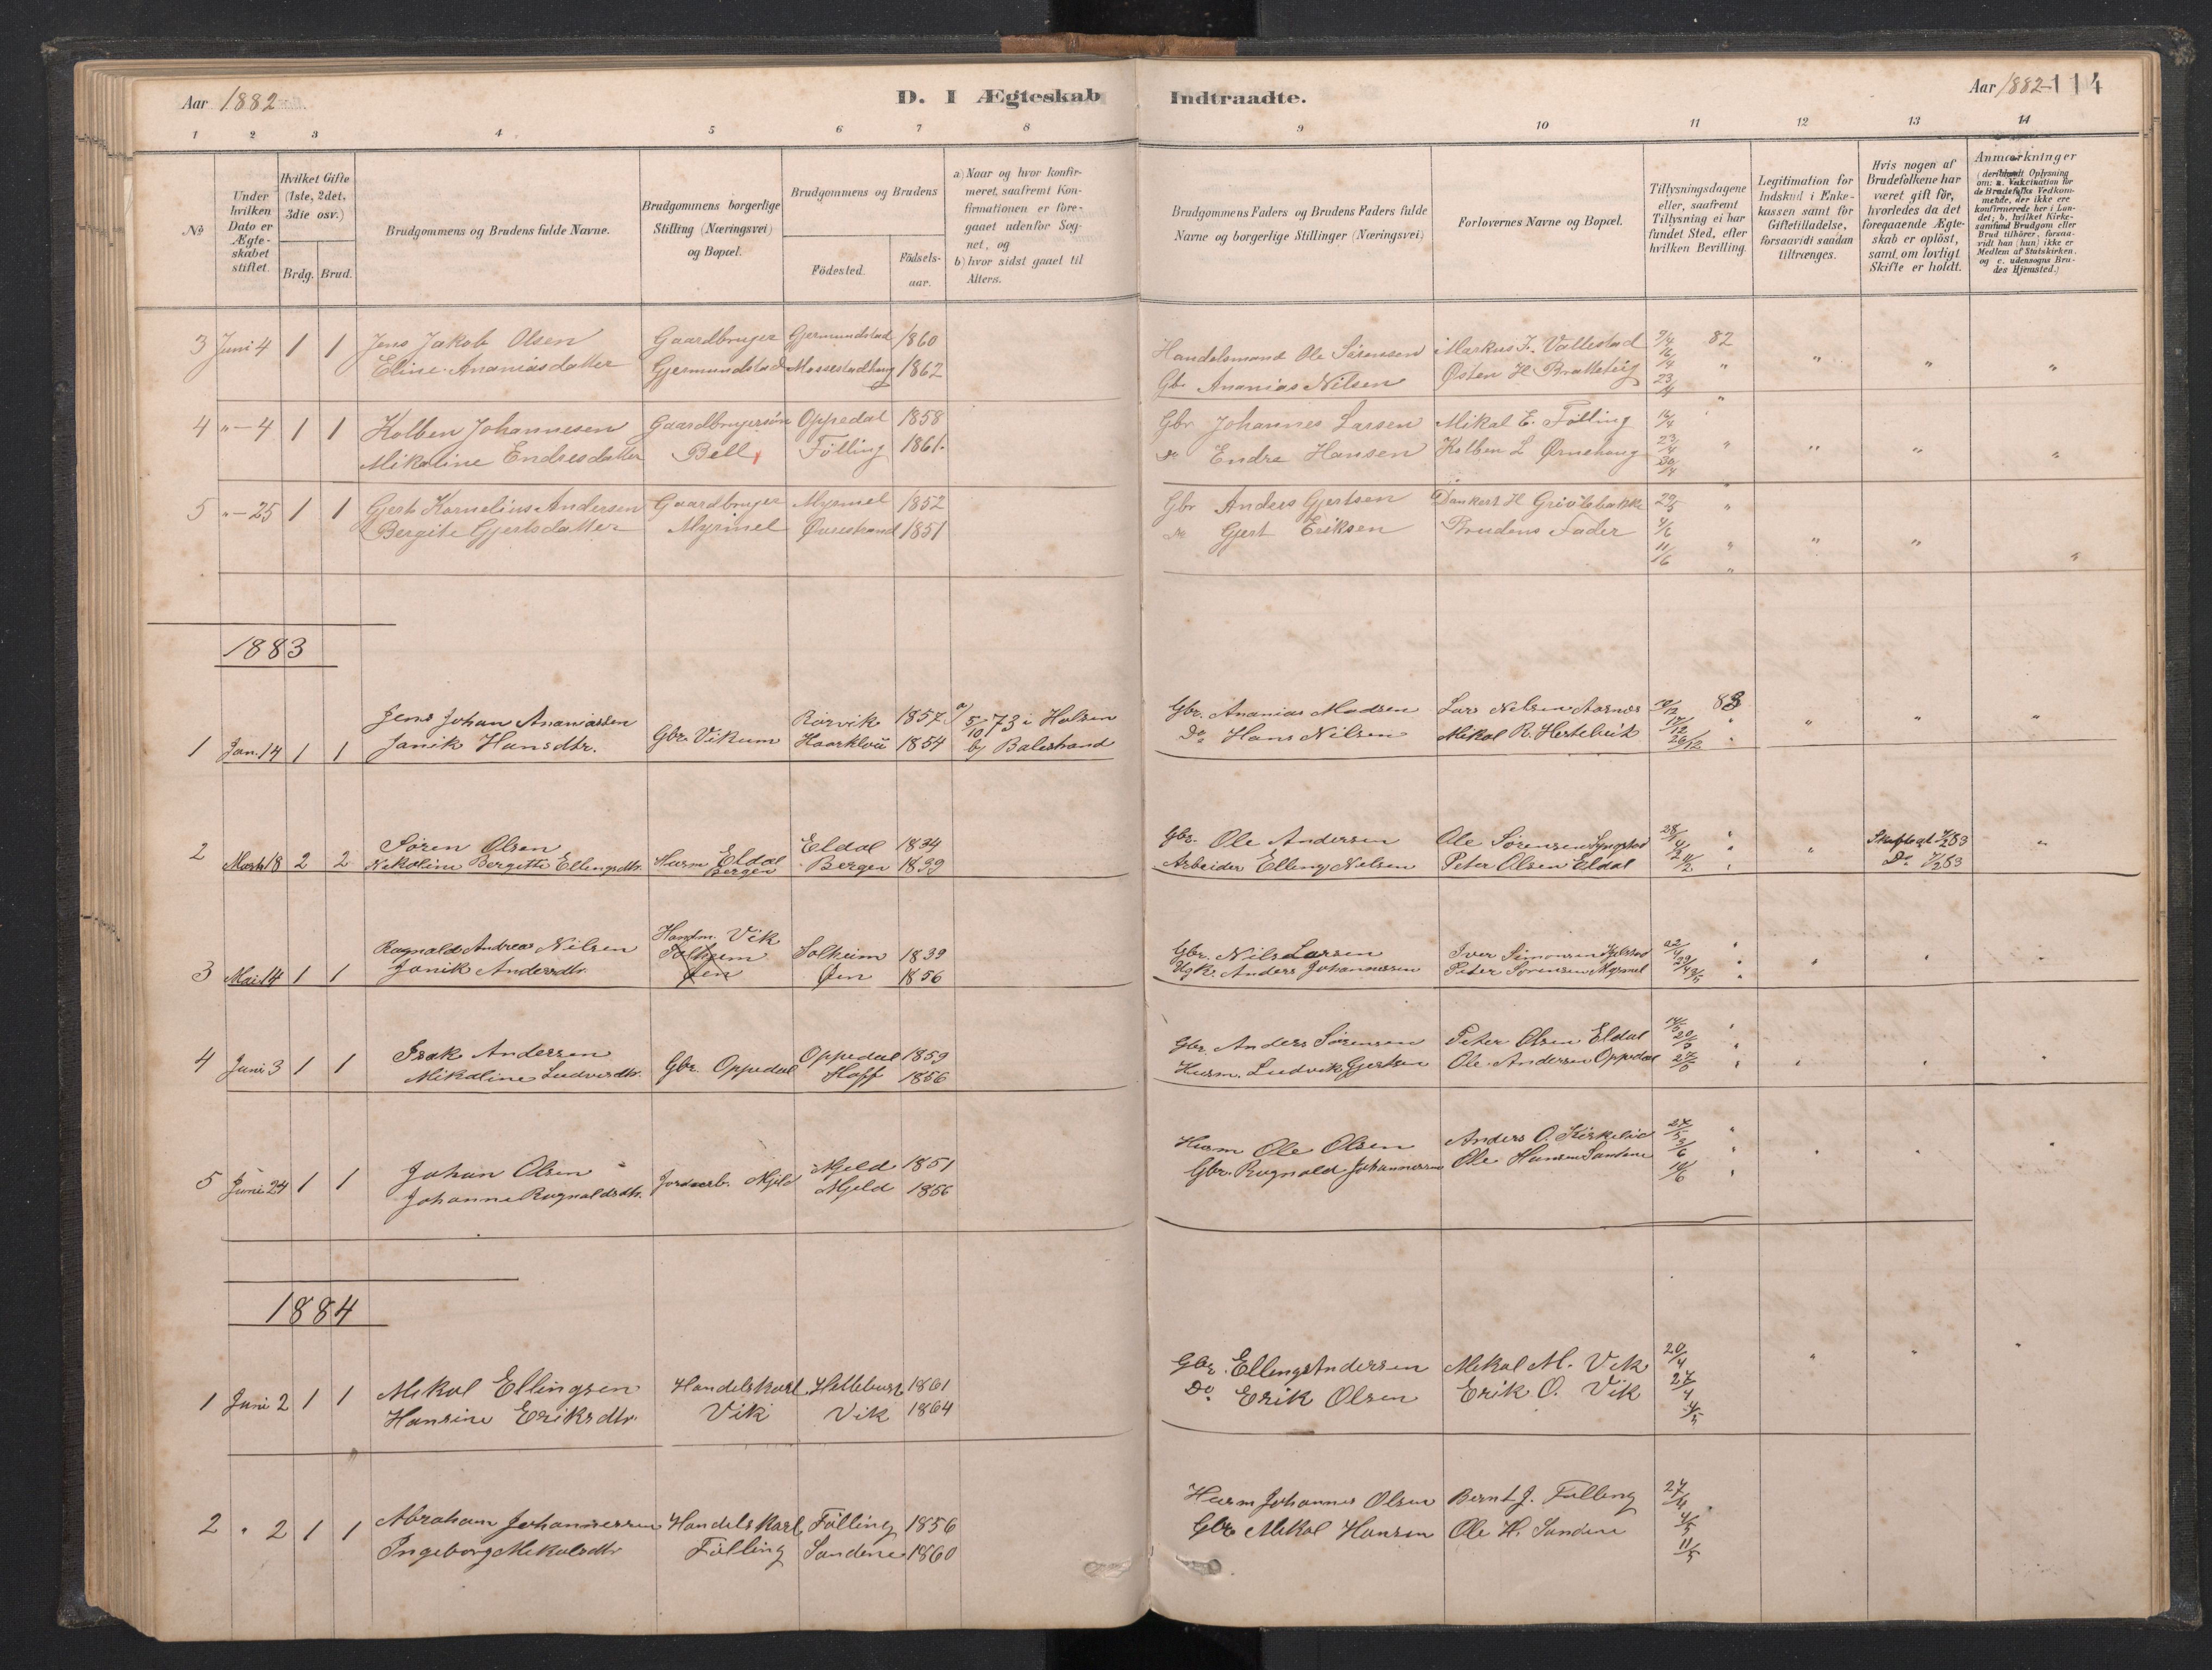 Aar 1882
D. I Ægteskab Indtraadte.
Aar 1882 114
1 2 3 4 5 6 7 8 9 10 11 12 13 14
№
Under hvilken Dato er Ægte-skabet stiftet.
Hvilket Gifte (1ste, 2det, 3die osv.)
Brdg. Brud.
Brudgommens og Brudens fulde Navne.
Brudgommens borgerlige Stilling (Næringsvei) og Bopæl.
Brudgommens og Brudens
Födested.
Födsels-aar.
a) Naar og hvor konfir-meret, saafremt Kon-firmationen er fore-gaaet udenfor Sog-net, og
b) hvor sidst gaaet til Alters.
Brudgommens Faders og Brudens Faders fulde Navne og borgerlige Stillinger (Næringsvei)
Forlovernes Navne og Bopæl.
Tillysningsdagene eller, saafremt Tillysning ei har fundet Sted, efter hvilken Bevilling.
Legitimation for Indskud i Enke-kassen samt for Giftetilladelse, forsaavidt saadan tiltrænges.
Hvis nogen af Brudefolkene har været gift för, hvorledes da det foregaaende Ægte-skab er oplöst, samt, om lovligt Skifte er holdt.
Anmærkninger (deriblandt Oplysning om: a. Vakcination for de Brudefolks Vedkom-mende, der ikke ere konfirmerede her i Lan-det; b. hvilket Kirke-samfund Brudgom eller Brud tilhörer, forsaa-vidt han (hun) ikke er Medlem af Statskirken, og c. udensogns Bru-des Hjemsted.)
3 Juni 4 1 1 Jens Jakob Olsen Gaardbruger Gjermundstad 1860 Handelsmand Ole Sörensen Markus J. Vallestad 9/4 82
Eline Ananiasdatter Gjermundstad 1862 Gbr Ananias Nilsen Østen H Bratteteig 16/4 23/4
4 " - 4 1 1 Kolben Johannesen Gaardbrugersön Oppedal 1858 Gbr Johannes Larsen Mikal E. Fölling
Mikaline Endresdatter Bell Fölling 1861. Do Endre Hansen Kolben L Ørnehaug 23/4 30/4
5 " - 25 1 1 Gert Kornelius Andersen Gaardbruger Myrmel 1852 Gbr Anders Gjertsen Dankert H Griölebakke 29/5
Bergite Gjertsdatter Myrmel 1851 Do Gjert Eriksen Brudens Fader 4/6 11/6
1883
1 Jan. 14 1 1 Jens Johan Ananiassen Gbr. Vikum Rörvik 1857 a/ 5/10 73 i Holsen Gbr. Ananias Madsen Lars Nilsen Aarnes 83
Janik Hansdtr. 1854 b/ Balestrand Do Hans Nilsen Mikal R. Hestebeit 17/12 26/12
2 Marts 18 2 2 Sören Olsen Husm Eldal Eldal 1834 Gbr. Ole Andersen Ole Sörensen 28/1
Nikoline Bergitte Ellingsdtr. Bergen Bergen 1839 Arbeider Elling Nilsen Peter Olsen Eldal 11/2
3 Mai 14 1 1 Ragnald Andreas Nilsen Handm. Vik Solheim 1839 Gbr. Nils Larsen Iver Simonsen 22/4
Janik Andersdtr. Øen 1856 Anders Johannessen Peter Sörensen Myrmel 29/4
4 Juni 3 1 1 Isak Andersen Gbr. Oppedal Oppedal 1859 Gbr. Anders Sörensen Peter Olsen Eldal
Mikaline Ludvigsdtr. Hoff 1856 Husm. Ludvik Gjertsen Ole Andersen Oppedal
5 Juni 24 1 1 Johan Olsen Mjeld Mjeld 1851 Husm Ole Olsen Anders O. Kirkelid 27/5
Johanne Ragnaldsdtr. Mjeld 1856 Gbr. Ragnald Johannessen Ole Hansen Sandene 3/6 10/6
1884
1 Juni 2 1 1 Mikal Ellingsen Handelskarl 1861 Gbr. Elling Andersen Mikal M. Vik 20/4
Hansine Eriksdtr. Vik Vik 1864 Do Erik Olsen Erik O. Vik 27/4 4/5
2 " 2 1 1 Abraham Johannessen Handelskarl Fölling 1856 Husm Johannes Olsen Bernt J. Fölling 27/4
Ingeborg Mikalsdtr Fölling Sandene 1860 Gbr Mikal Hansen Ole H. Sandene 4/5 11/5